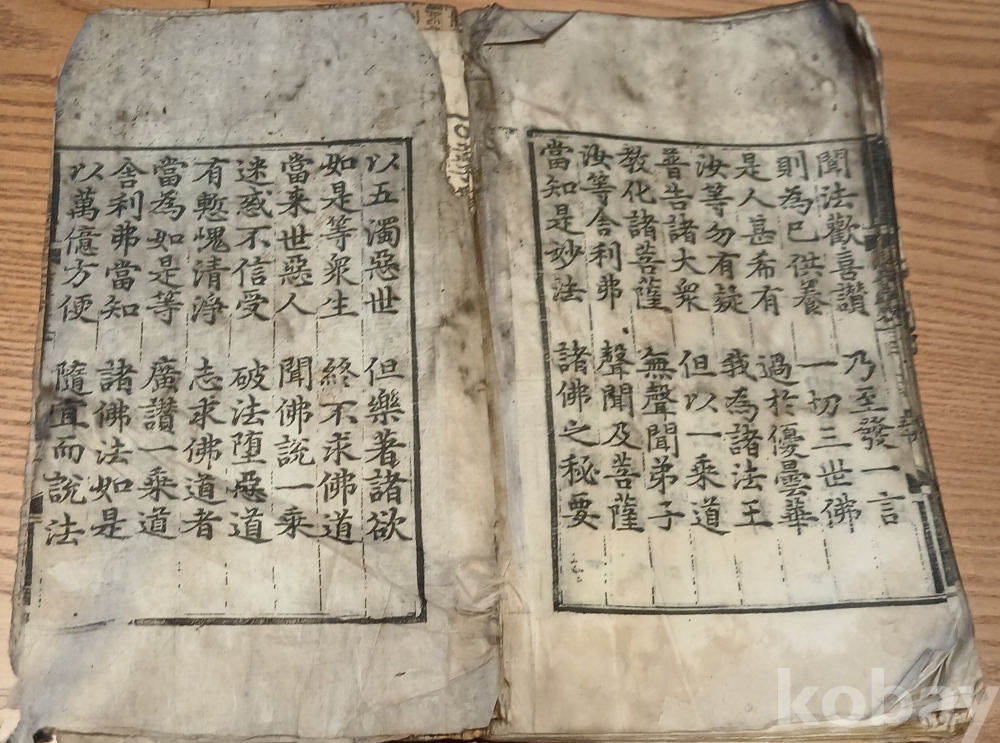 聞法歡喜讃 乃至發一言
則為巳供養 一切三世佛
是人甚希有 過於優曇華
汝等勿有疑 我為諸法王
普告諸大衆 但以一乘道
教化諸菩薩 無聲聞弟子
汝等舍利弗 聲聞及菩薩
當知是妙法 諸佛之秘要
以五濁惡世 但樂著諸欲
如是等衆生 終不求佛道
當来世惡人 聞佛說一乘
迷惑不信受 破法墮惡道
有慙愧清淨 志求佛道者
當為如是等 廣讃一乘道
舍利弗當知 諸佛法如是
以萬億方便 隨宜而說法
kobay